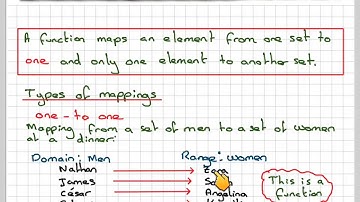 A function maps an element from one set to
one and only one element to another set.
Types of mappings
one - to one
Mapping from a set of men to a set of women
at a dinner:
Domain: Men Range: women
Nathan
James
César Angelina
This is a
function